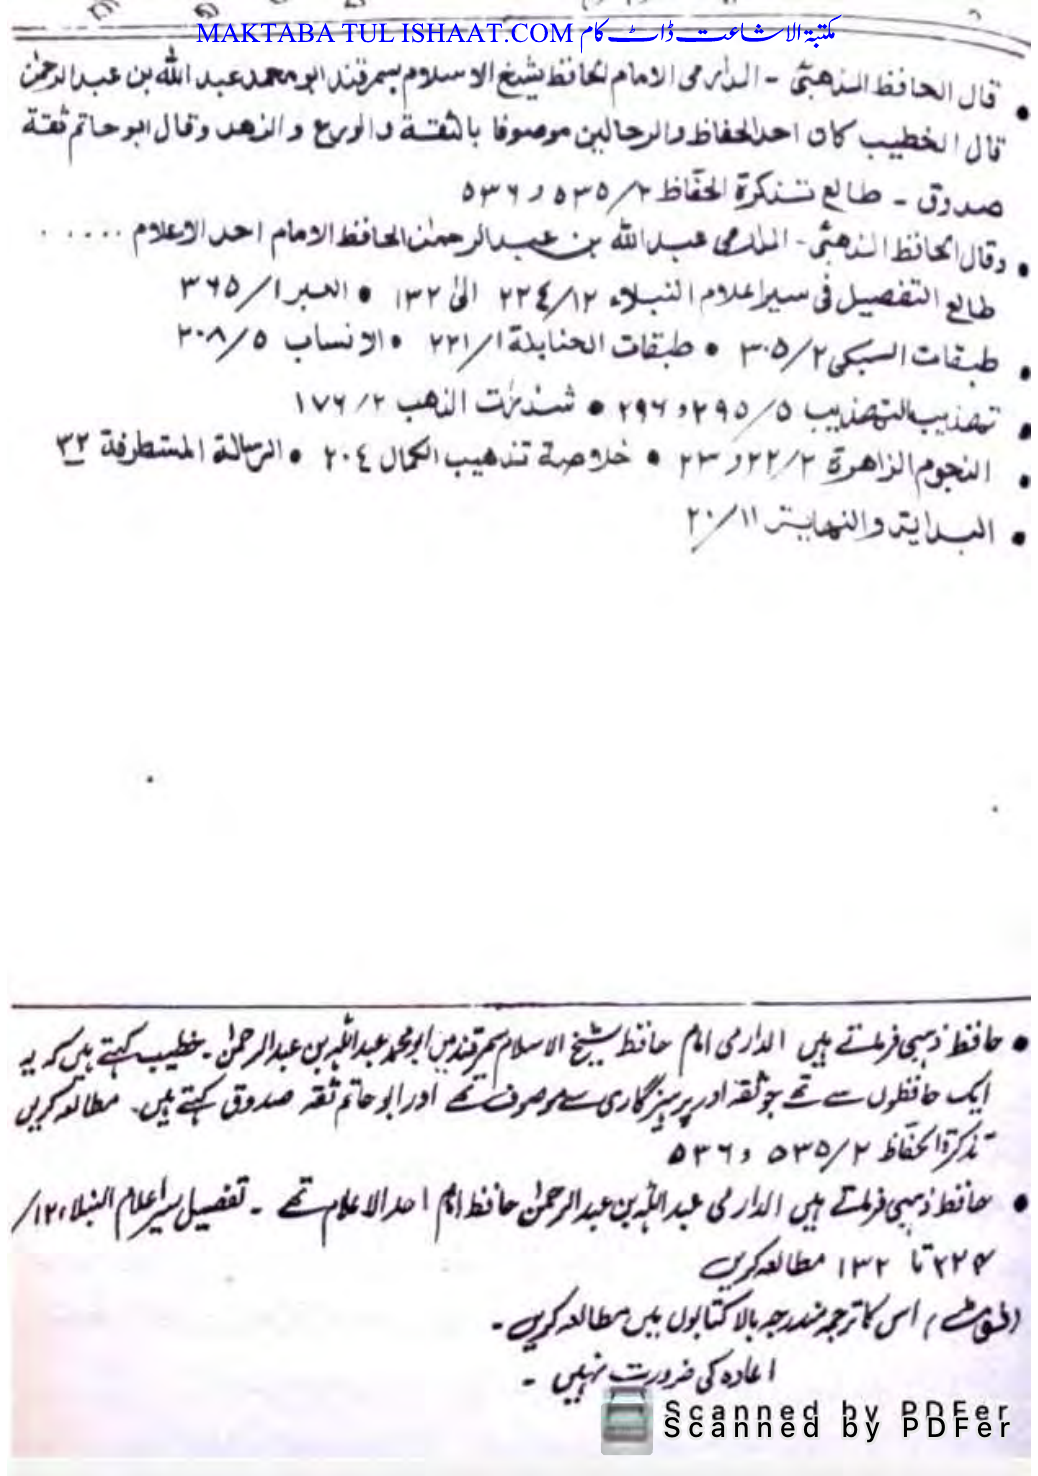 MAKTABA TUL ISHAAT.COM مکتبۃ الاشاعت ڈاٹ کام
• قال الحافظ الذهبیؒ - الدارمی الامام الحافظ شیخ الاسلام بسمرقند ابو محمد عبد الله بن عبد الرحمٰن
قال الخطیب کان احد الحفاظ والرحالین موصوفا بالثقة والورع والزهد وقال ابو حاتم ثقة
صدوق - طالع تذکرة الحفاظ ۲/۵۳۵ و ۵۳۶
• وقال الحافظ الذهبیؒ - الدارمی عبد الله بن عبد الرحمٰن الحافظ الامام احد الاعلام .....
طالع التفصیل فی سیر اعلام النبلاء ۱۲/۲۲٤ الیٰ ۱۳۲ • العبر ۱/۳٦۵
• طبقات السبکی ۲/۳۰۵ • طبقات الحنابلة ۱/۲۲۱ • الانساب ۵/۲۰۸
• تهذیب التهذیب ۵/۲۹۵ و ۲۹۶ • شذرات الذهب ۲/۱۷۶
• النجوم الزاهرة ۲/۲۲ و ۲۳ • خلاصة تذهیب الکمال ۲۰٤ • الرسالة المستطرفة ۳۲
• البدایة والنهایة ۱۱/۲۰
• حافظ ذہبی فرماتے ہیں الدارمی امام حافظ شیخ الاسلام سمرقند میں ابو محمد عبد اللہ بن عبد الرحمٰن - خطیب کہتے ہیں کہ یہ
ایک حافظوں سے تھے جو ثقہ اور پرہیزگاری سے موصوف تھے اور ابو حاتم ثقہ صدوق کہتے ہیں۔ مطالعہ کریں
تذکرۃ الحفاظ ۲/۵۳۵ و ۵۳۶
• حافظ ذہبی فرماتے ہیں الدارمی عبد اللہ بن عبد الرحمٰن حافظ امام احد الاعلام تھے - تفصیل سیر اعلام النبلاء ۱۲/
۲۲۴ تا ۱۳۲ مطالعہ کریں
اس کا ترجمہ مندرجہ بالا کتابوں میں مطالعہ کریں -
اعادہ کی ضرورت نہیں -
Scanned by PDFer
Scanned by PDFer